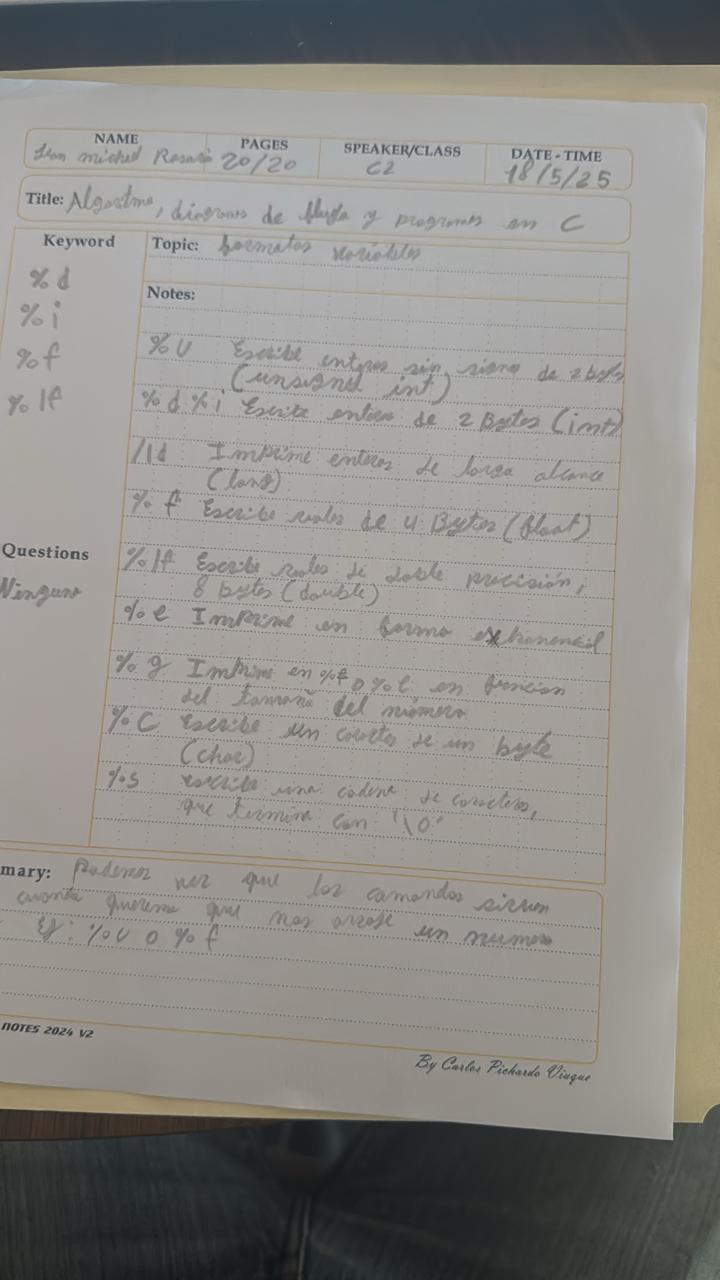 NAME PAGES SPEAKER/CLASS DATE - TIME
Jean michel Rosario 20/20 C2 18/5/25
Title: Algoritmo, diagramas de flujo y programas en C
Keyword
%d
%i
%f
%lf
Topic: formatos variables
Notes:
%U Escribe enteros sin signo de 2 bytes
(unsigned int)
%d %i Escribe entero de 2 Bytes (int)
/ld Imprime enteros de larga alcance
(long)
% f Escribe reales de 4 Bytes (float)
%lf Escribe reales de doble precisión,
8 bytes (double)
%e Imprime en forma exponencial
%g Imprime en %f o %e en funcion
del tamaño del número
%C Escribe un caracter de un byte
(char)
%s escribe una cadena de caracteres,
que termina con '\0'
Questions
Ninguno
mary: Podemos ver que los comandos sirven
cuando queremos que nos arroje un numero
Ej: %U o %f
NOTES 2024 V2
By Carlos Pichardo Viuque